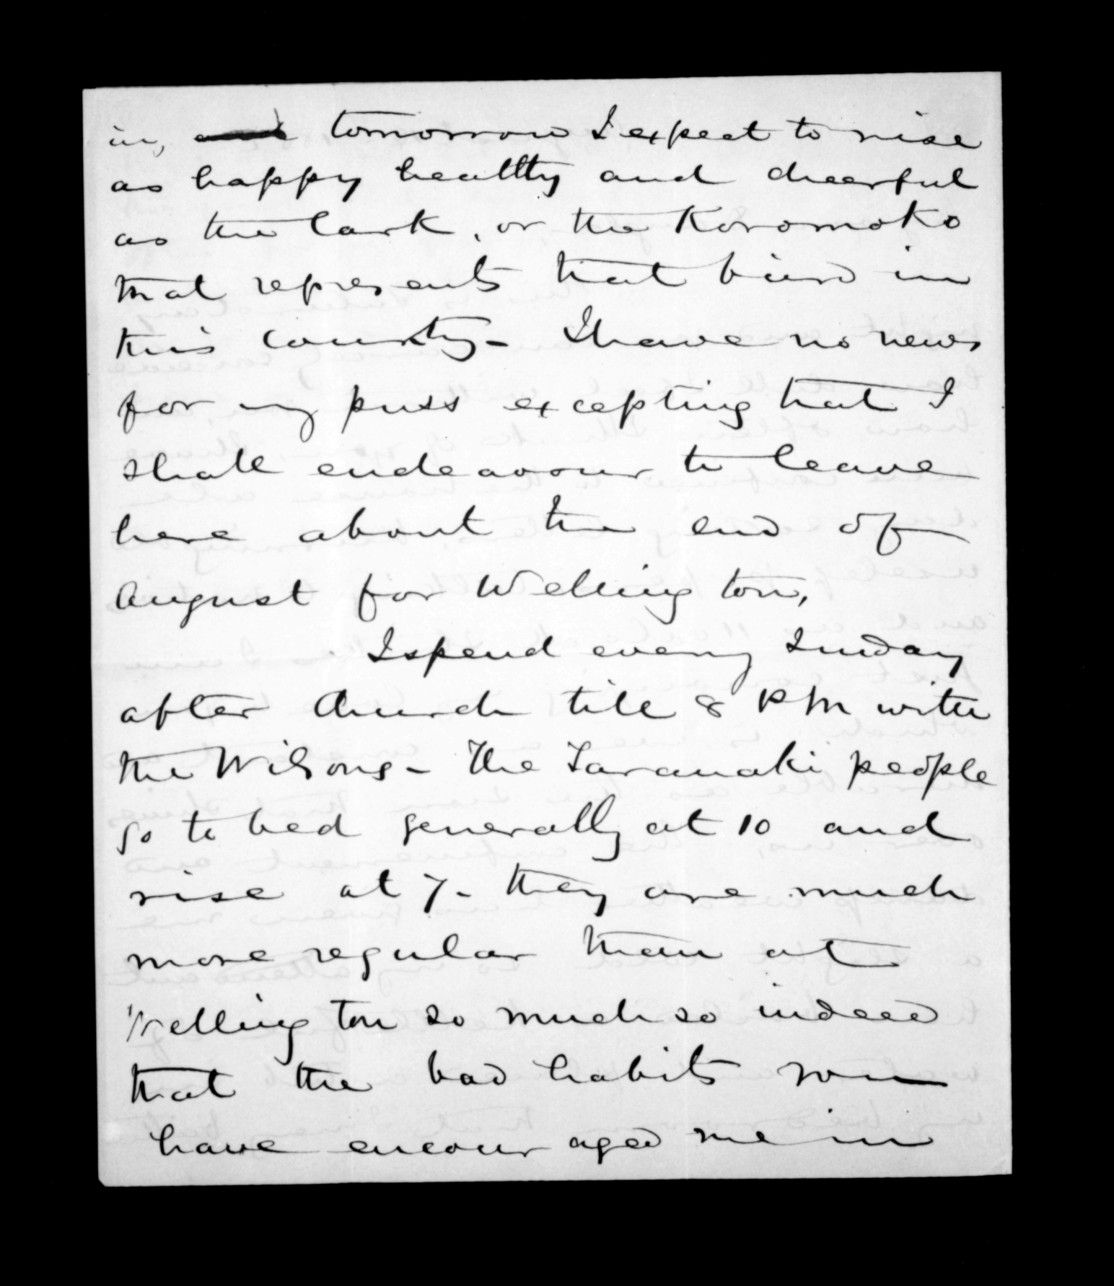 in, and tomorrow I expect to rise
as happy healthy and cheerful
as the lark, or the Koromoko
that represents that bird in
this country - I have no news
for my puss excepting that I
shall endeavour to leave
here about the end of
August for Wellington,
I spend every Sunday
after Church till 8 PM with
the Wilsons - The Taranaki people
go to bed generally at 10 and
rise at 7 - they are much
more regular than at
Wellington so much so indeed
that the bad habits you
have encouraged me in